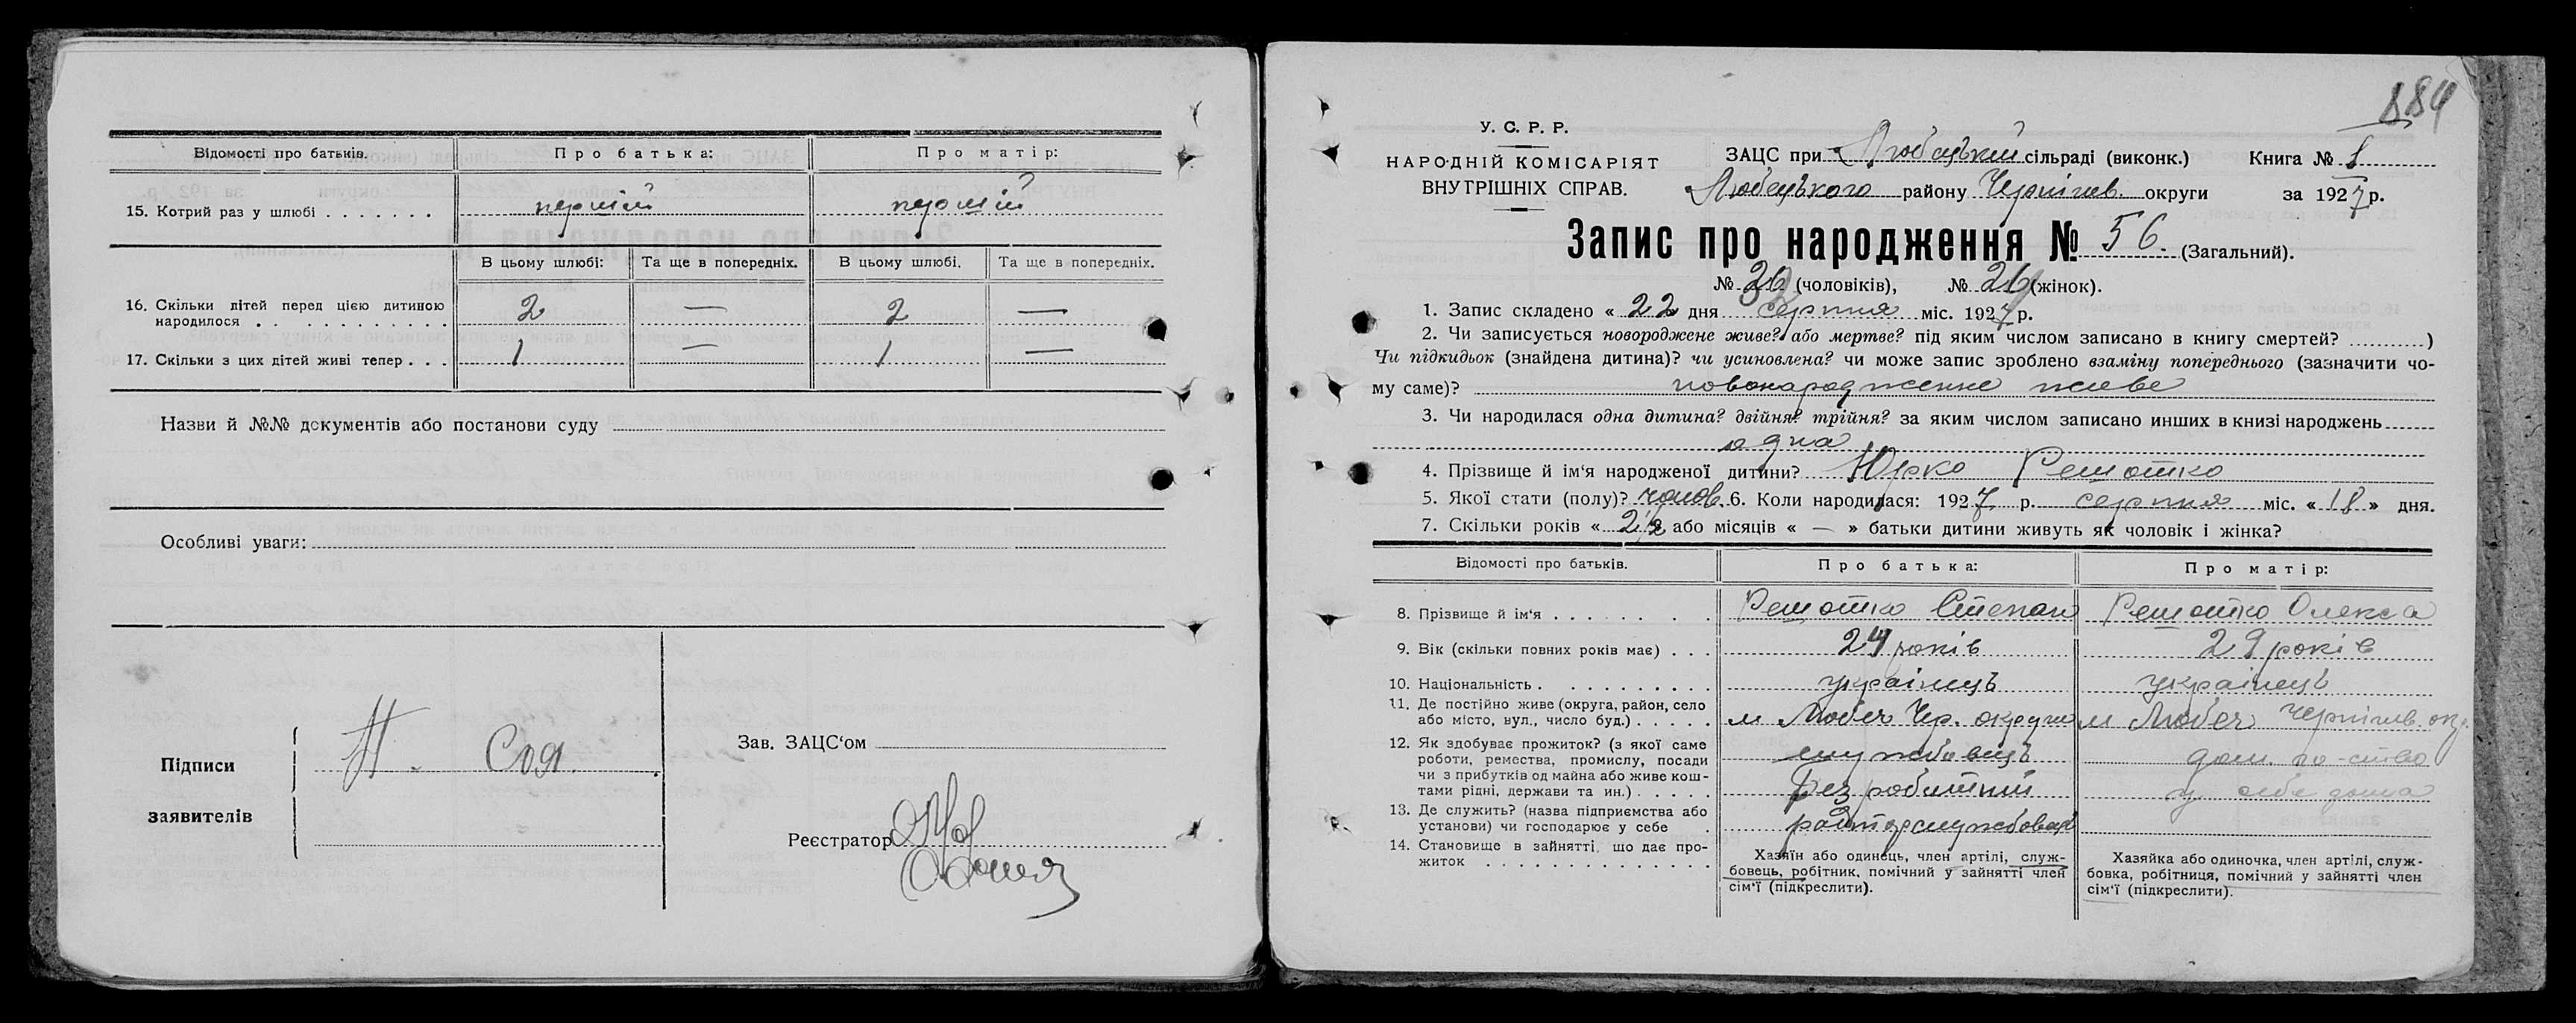 Відомості про батьків. Про батька: Про матір:
15. Котрий раз у шлюбі . . . . . . . перший перший
В цьому шлюбі: Та ще в попередніх. В цьому шлюбі. Та ще в попередніх.
16. Скільки дітей перед цією дитиною
народилося . . . . . . . . . . . 2 — 2 —
17. Скільки з цих дітей живі тепер . . . 1 — 1 —
Назви й №№ документів або постанови суду
Особливі уваги:
Підписи
заявителів
Зав. ЗАЦС‘ом
Реєстратор
884
У. С. Р. Р.
НАРОДНІЙ КОМІСАРІЯТ
ВНУТРІШНІХ СПРАВ.
ЗАЦС при Любецький сільраді (виконк.) Книга № 1
Любецького району Чернігів. округи за 1927 р.
Запис про народження № 56. (Загальний).
№ (чоловіків), № 26 (жінок).
1. Запис складено « 22 дня серпня міс. 1927 р.
2. Чи записується новороджене живе? або мертве? під яким числом записано в книгу смертей? ...........)
Чи підкидьок (знайдена дитина)? чи усиновлена? чи може запис зроблено взаміну попереднього (зазначити чо-
му саме)? новонародженне живе
3. Чи народилася одна дитина? двійня? трійня? за яким числом записано инших в книзі народжень
одна
4. Прізвище й ім‘я народженої дитини? Юрко Решотко
5. Якої стати (полу)? чолов. 6. Коли народилася: 1927 р. серпня міс. « 18 » дня.
7. Скільки років « 2½ або місяців « — » батьки дитини живуть як чоловік і жінка?
Відомості про батьків. Про батька: Про матір:
8. Прізвище й ім‘я . . . . . . . . Решотко Степан Решотко Олекса
9. Вік (скільки повних років має) . . . 24 років 29 років
10. Національність . . . . . . . . . . українець українець
11. Де постійно живе (округа, район, село
або місто, вул., число буд.) . . . . . м Любеч Чер. округи м Любеч Чернігів. окр.
12. Як здобуває прожиток? (з якої саме
роботи, ремества, промислу, посади
чи з прибутків од майна або живе кош-
тами рідні, держави та ин.) . . . . .
службовець
безробітний
дом. го-ство
у себе дома
13. Де служить? (назва підприємства або
установи) чи господарює у себе .
14. Становище в зайнятті, що дає про-
житок . . . . . . . . . . . . . .
Хазяїн або одинець, член артілі, служ-
бовець, робітник, помічний у зайнятті член
сім‘ї (підкреслити).
Хазяйка або одиночка, член артілі, служ-
бовка, робітниця, помічний у зайнятті член
сім‘ї (підкреслити).